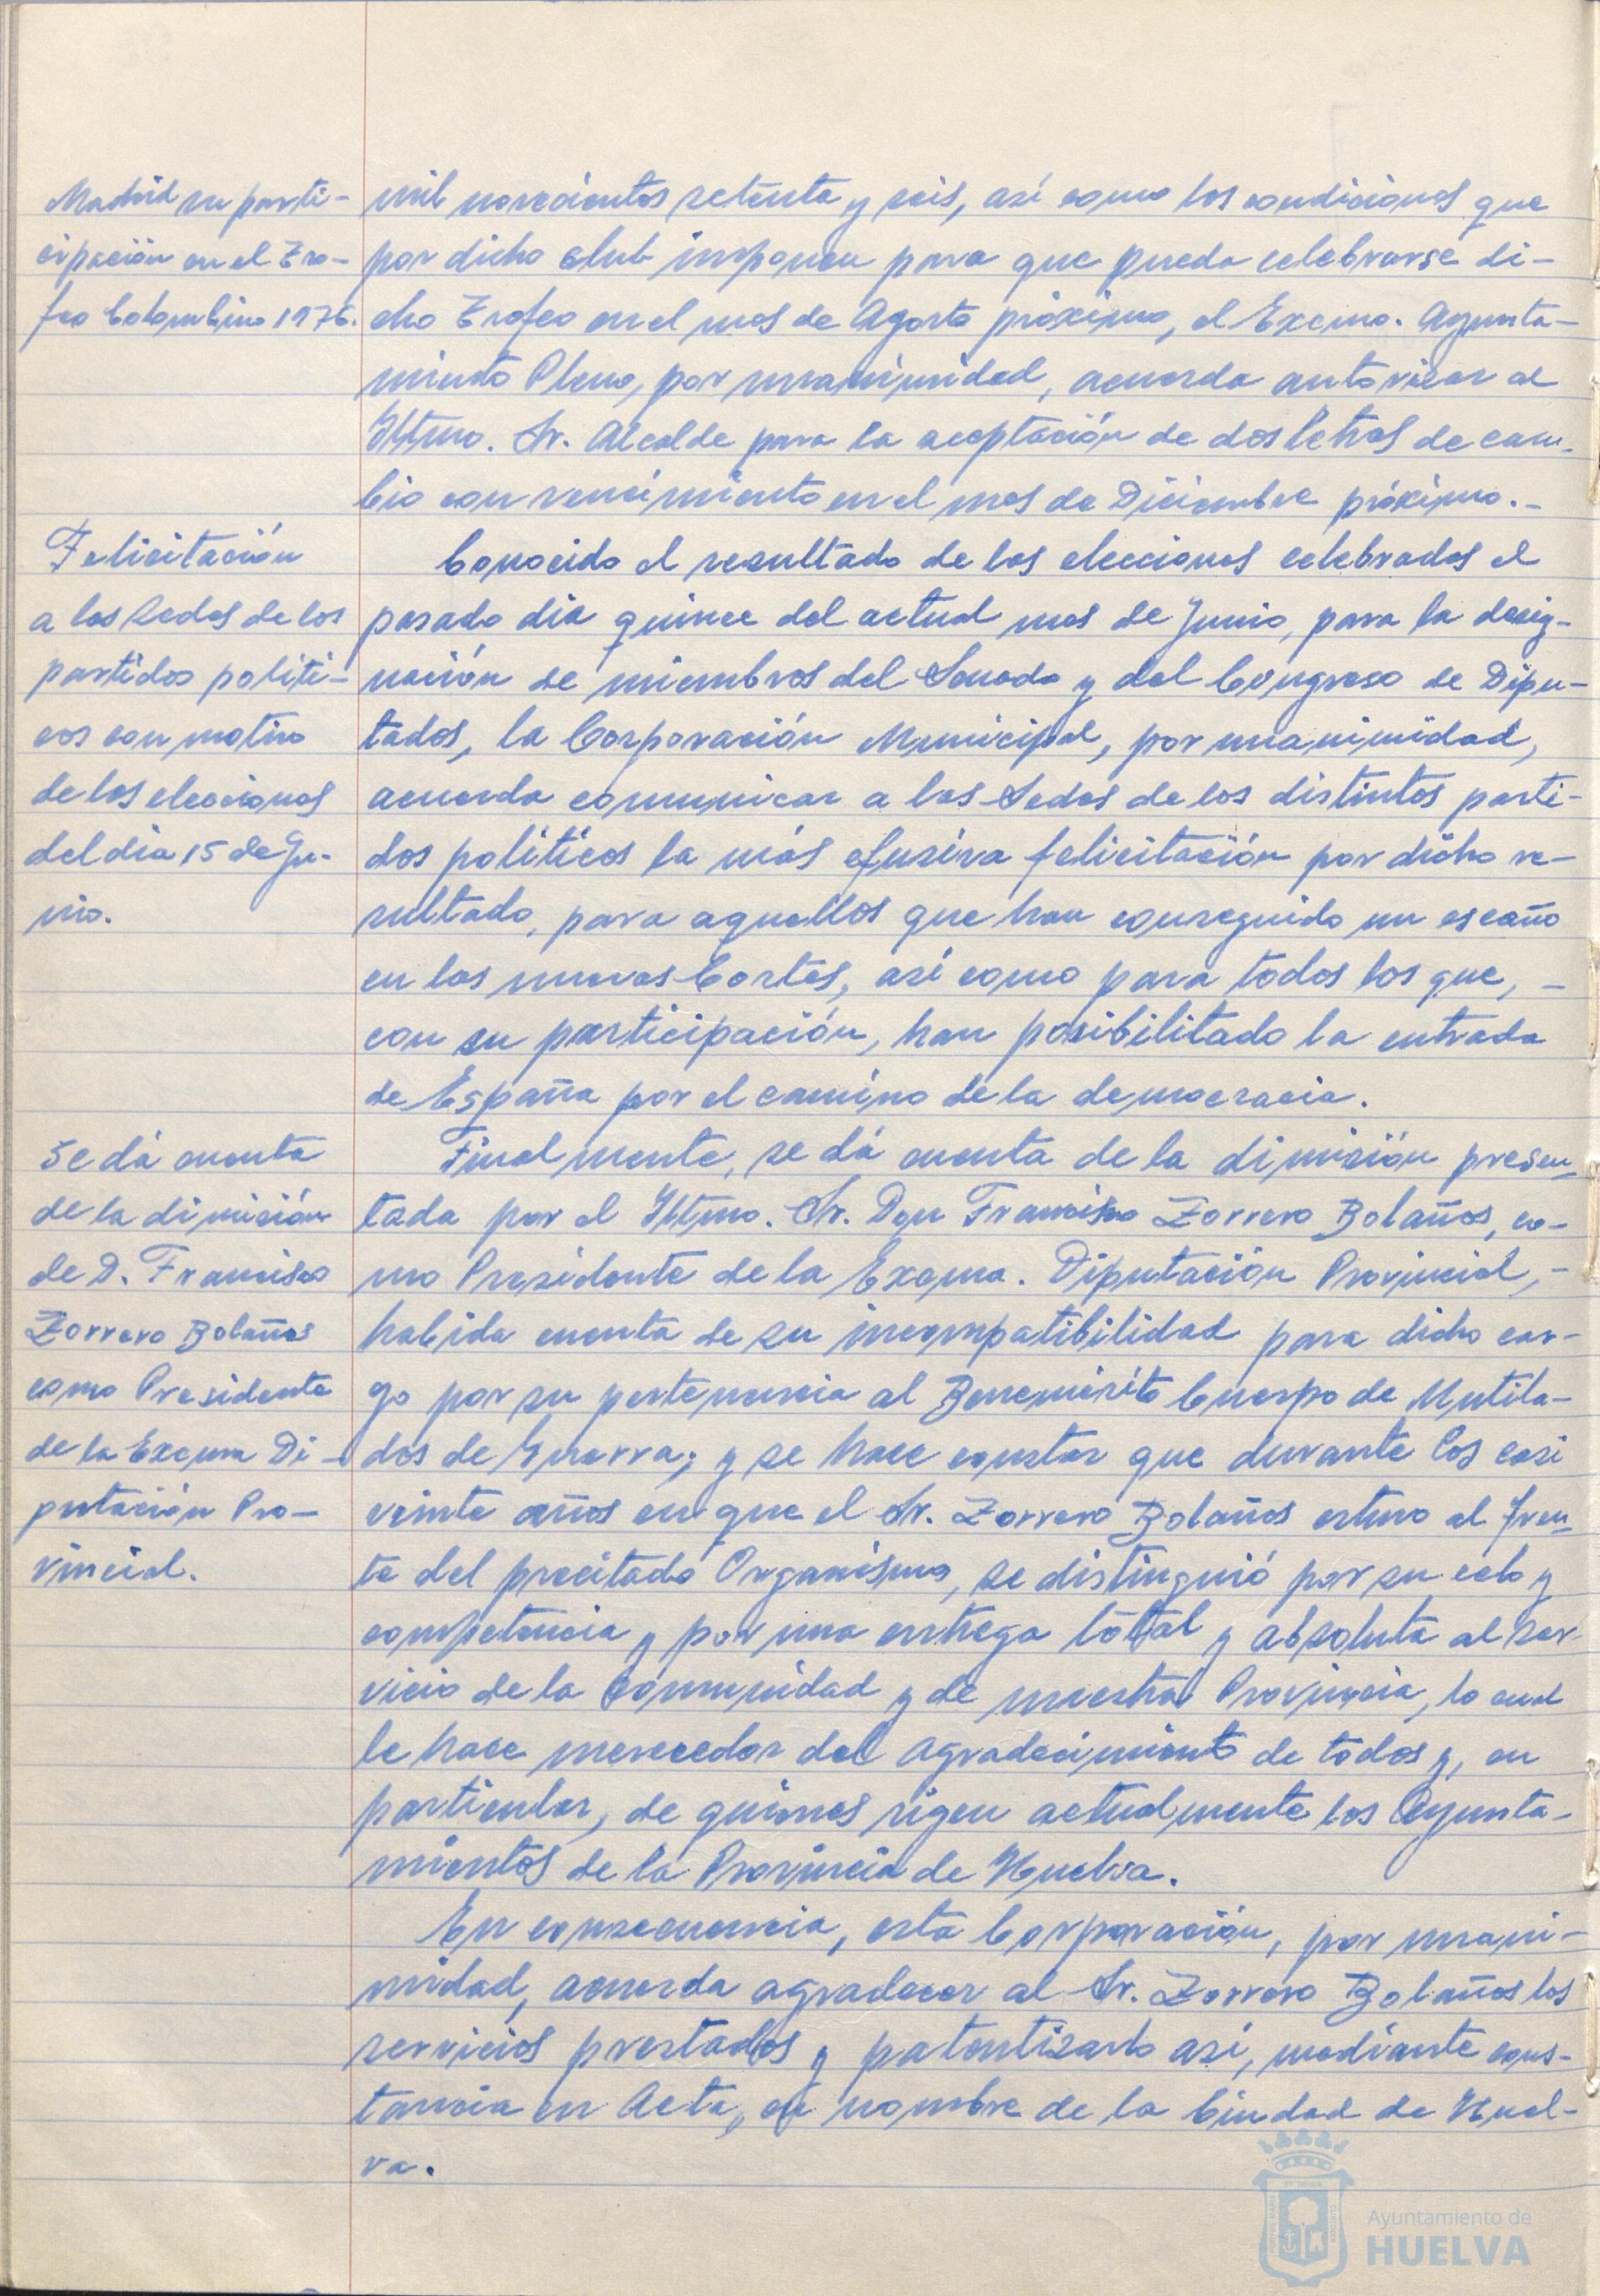 Madrid su parti-
cipación en el Tro-
feo Colombino 1976.
mil novecientos setenta y seis, así como las condiciones que
por dicho club imponen para que pueda celebrarse di-
cho Trofeo en el mes de Agosto próximo, el Excmo. Ayunta-
miento Pleno, por unanimidad, acuerda autorizar al
Iltmo. Sr. Alcalde para la aceptación de dos letras de cam-
bio con vencimiento en el mes de Diciembre próximo.-
Felicitación
a las Sedes de los
partidos políti-
cos con motivo
de las elecciones
del día 15 de Ju-
nio.
Conocido el resultado de las elecciones celebradas el
pasado día quince del actual mes de Junio, para la desig-
nación de miembros del Senado y del Congreso de Dipu-
tados, la Corporación Municipal, por unanimidad,
acuerda comunicar a las Sedes de los distintos parti-
dos políticos la más efusiva felicitación por dicho re-
sultado, para aquellos que han conseguido un escaño
en las nuevas Cortes, así como para todos los que, -
con su participación, han posibilitado la entrada
de España por el camino de la democracia.
Se dá cuenta
de la dimisión
de D. Francisco
Zorrero Bolaños
como Presidente
de la Excma Di-
putación Pro-
vincial.
Finalmente, se dá cuenta de la dimisión presen-
tada por el Iltmo. Sr. Don Francisco Zorrero Bolaños, co-
mo Presidente de la Excma. Diputación Provincial, -
habida cuenta de su incompatibilidad para dicho car-
go por su pertenencia al Benemérito Cuerpo de Mutila-
dos de Guerra; y se hace constar que durante los casi
veinte años en que el Sr. Zorrero Bolaños estuvo al fren-
te del precitado Organismo, se distinguió por su celo y
competencia y por una entrega total y absoluta al ser-
vicio de la Comunidad y de nuestra Provincia, lo cual
le hace merecedor del agradecimiento de todos y, en
particular, de quienes rigen actualmente los Ayunta-
mientos de la Provincia de Huelva.
En consecuencia, esta Corporación, por unani-
midad, acuerda agradecer al Sr. Zorrero Bolaños los
servicios prestados y patentizarlo así, mediante cons-
tancia en Acta, en nombre de la Ciudad de Huel-
va.
Ayuntamiento de
HUELVA